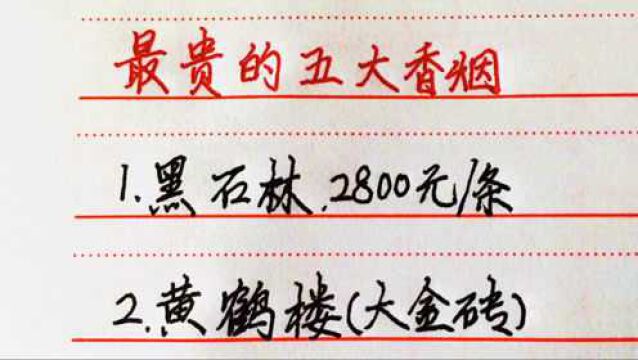 最贵的五大香烟
1.黑石林,2800元/条
2.黄鹤楼(大金砖)